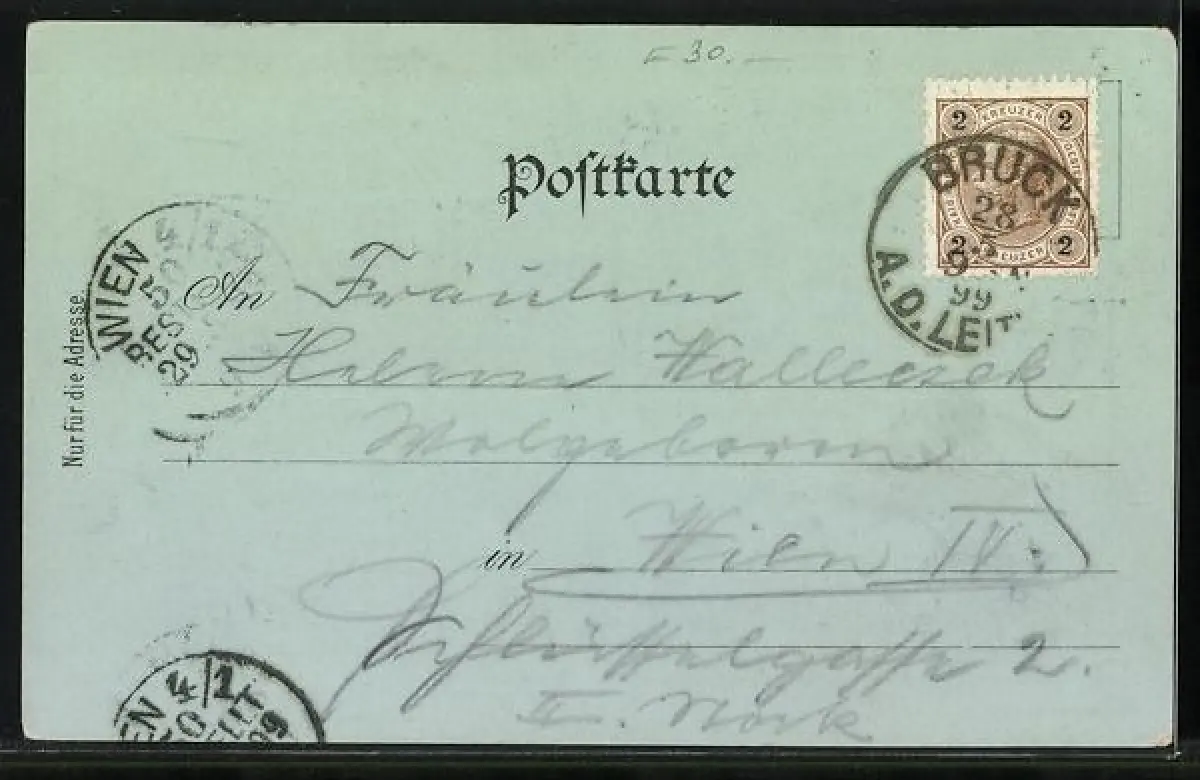 30.
Postkarte
2 KREUZER 2
2 KREUZER 2
BRUCK
28
99
A. D. LEIT
WIEN 4/1
50
BES
29
Nur für die Adresse.
An Fräulein
Helene Walleczek
Wolgeboren
in Wien IV.
Schlüsselgasse 2.
II. Stock
WIEN 4/1
50
99